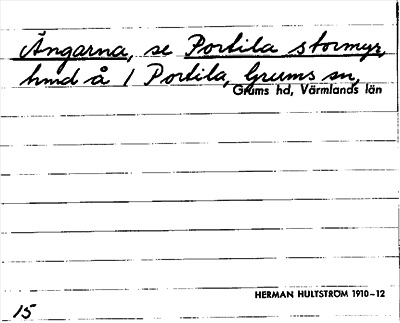 Ängarna, se Portila stormyr,
hmd å 1 Portila, Grums sn,
Grums hd, Värmlands län
HERMAN HULTSTRÖM 1910–12
15